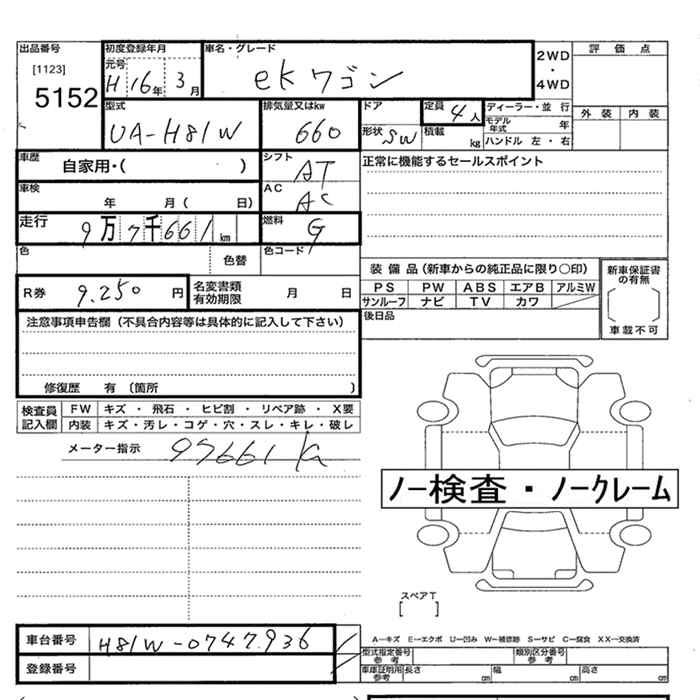 出品番号
[1123]
5152
初度登録年月
元号
H 16年 3月
車名・グレード
ekワゴン
2WD
・
4WD
評価点
外装 内装
型式
UA-H81W
排気量又はkw
660
ドア
形状 SW
定員 4人
積載 kg
ディーラー・並行
モデル年式 年
ハンドル 左・右
車歴
自家用・( )
シフト
AT
正常に機能するセールスポイント
車検
年 月( 日)
AC
AC
走行
9万7千661km
燃料
G
色
色替
色コード
R券
9.250円
名変書類
有効期限 月 日
装備品(新車からの純正品に限り○印)
PS PW ABS エアB アルミW
サンルーフ ナビ TV カワ
新車保証書
の有無
車載不可
後日品
注意事項申告欄(不具合内容等は具体的に記入して下さい)
修復歴 有 (箇所 )
検査員
記入欄
FW キズ・飛石・ヒビ割・リペア跡・X要
内装 キズ・汚レ・コゲ・穴・スレ・キレ・破レ
メーター指示 97661 K
ノー検査・ノークレーム
スペアT
[ ]
車台番号 H81W-0747936
登録番号
A–キズ E–エクボ U–凹み W–補修跡 S–サビ C–腐食 XX–交換済
型式指定番号
参考
類別区分番号
参考
車庫証明用
参考
長さ cm 幅 cm 高さ cm